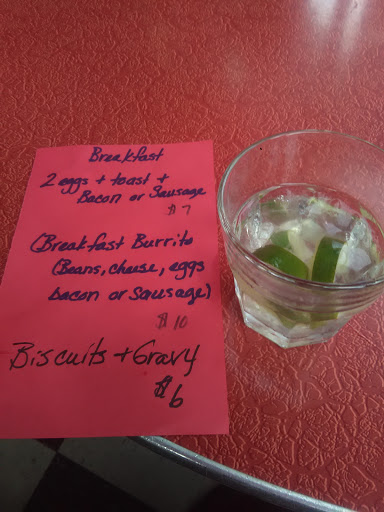 Breakfast
2 eggs + toast +
Bacon or Sausage
$7
(Breakfast Burrito
(Beans, cheese, eggs
bacon or Sausage)
$10
Biscuits + Gravy
$6